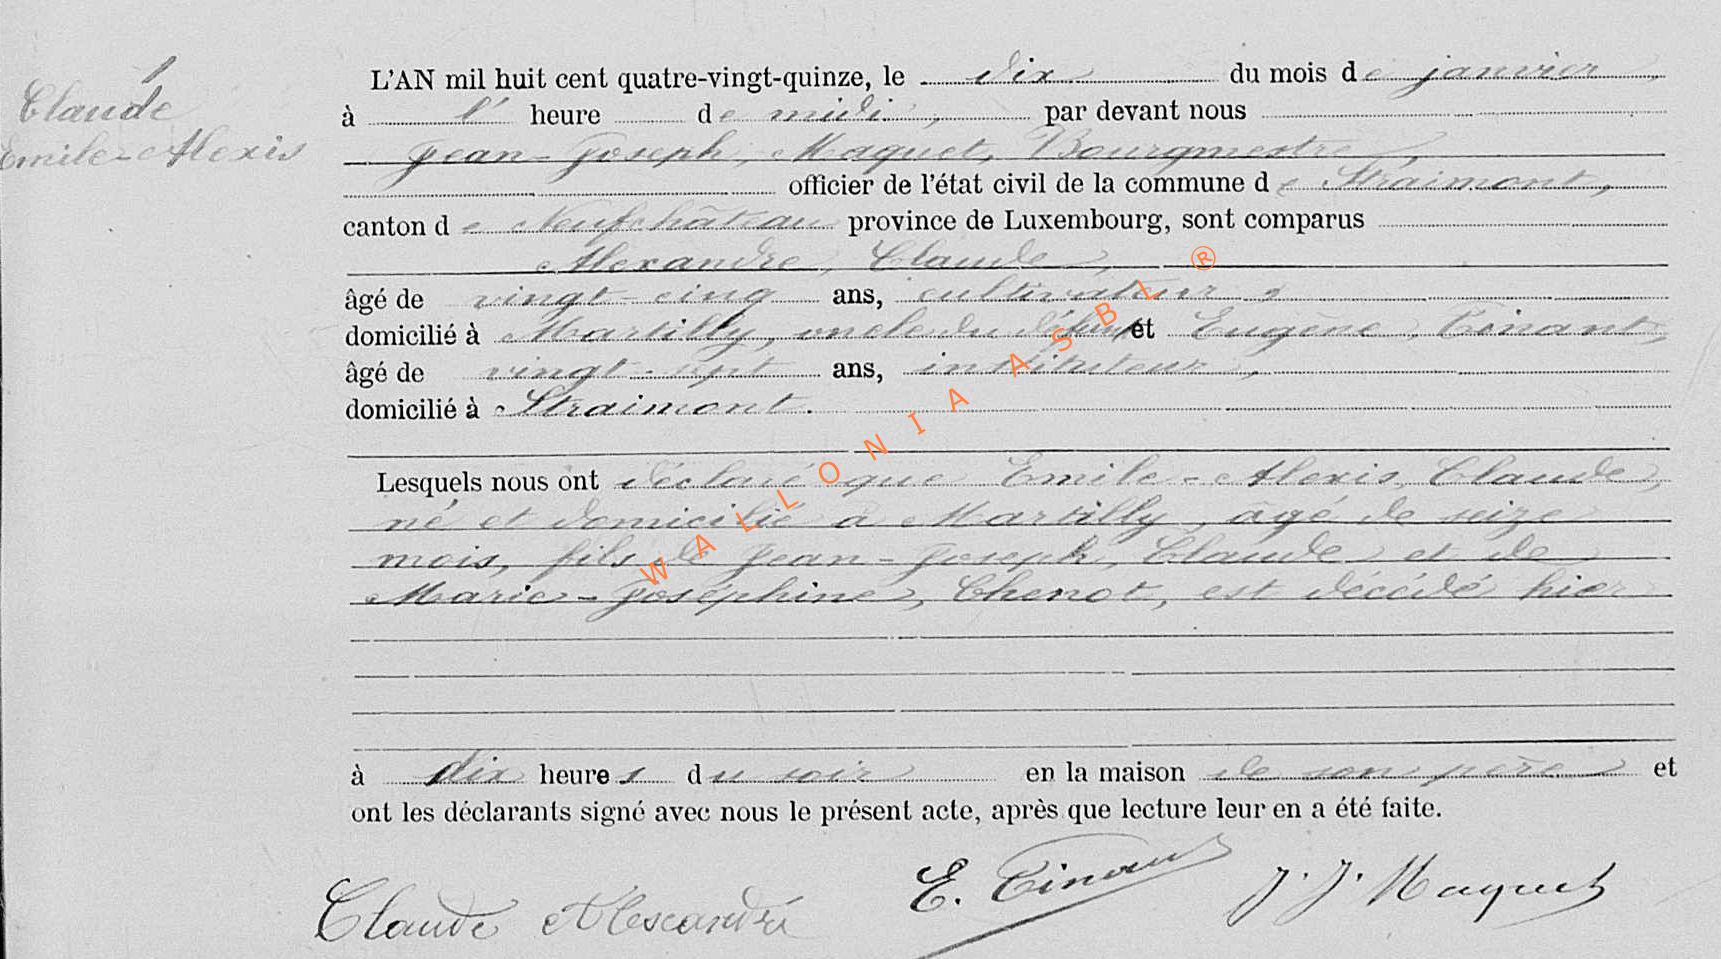 1
Claude
Emile-Alexis
L'AN mil huit cent quatre-vingt-quinze, le dix du mois de janvier
à l' heure de midi, par devant nous
Jean-Joseph, Maquet, Bourgmestre,
officier de l'état civil de la commune de Straimont,
canton de Neufchâteau province de Luxembourg, sont comparus
Alexandre, Claude,
âgé de vingt-cinq ans, cultivateur,
domicilié à Martilly, oncle du défunt et Eugène, Tinant,
âgé de vingt-sept ans, instituteur,
domicilié à Straimont.
Lesquels nous ont déclaré que Emile-Alexis, Claude,
né et domicilié à Martilly, âgé de seize
mois, fils de Jean-Joseph, Claude et de
Marie-Joséphine, Chenot, est décédé hier
à dix heures du soir en la maison de son père et
ont les déclarants signé avec nous le présent acte, après que lecture leur en a été faite.
Claude Alescandré
E. Tinant
J. J. Maquet
WALLONIA ASBL ®